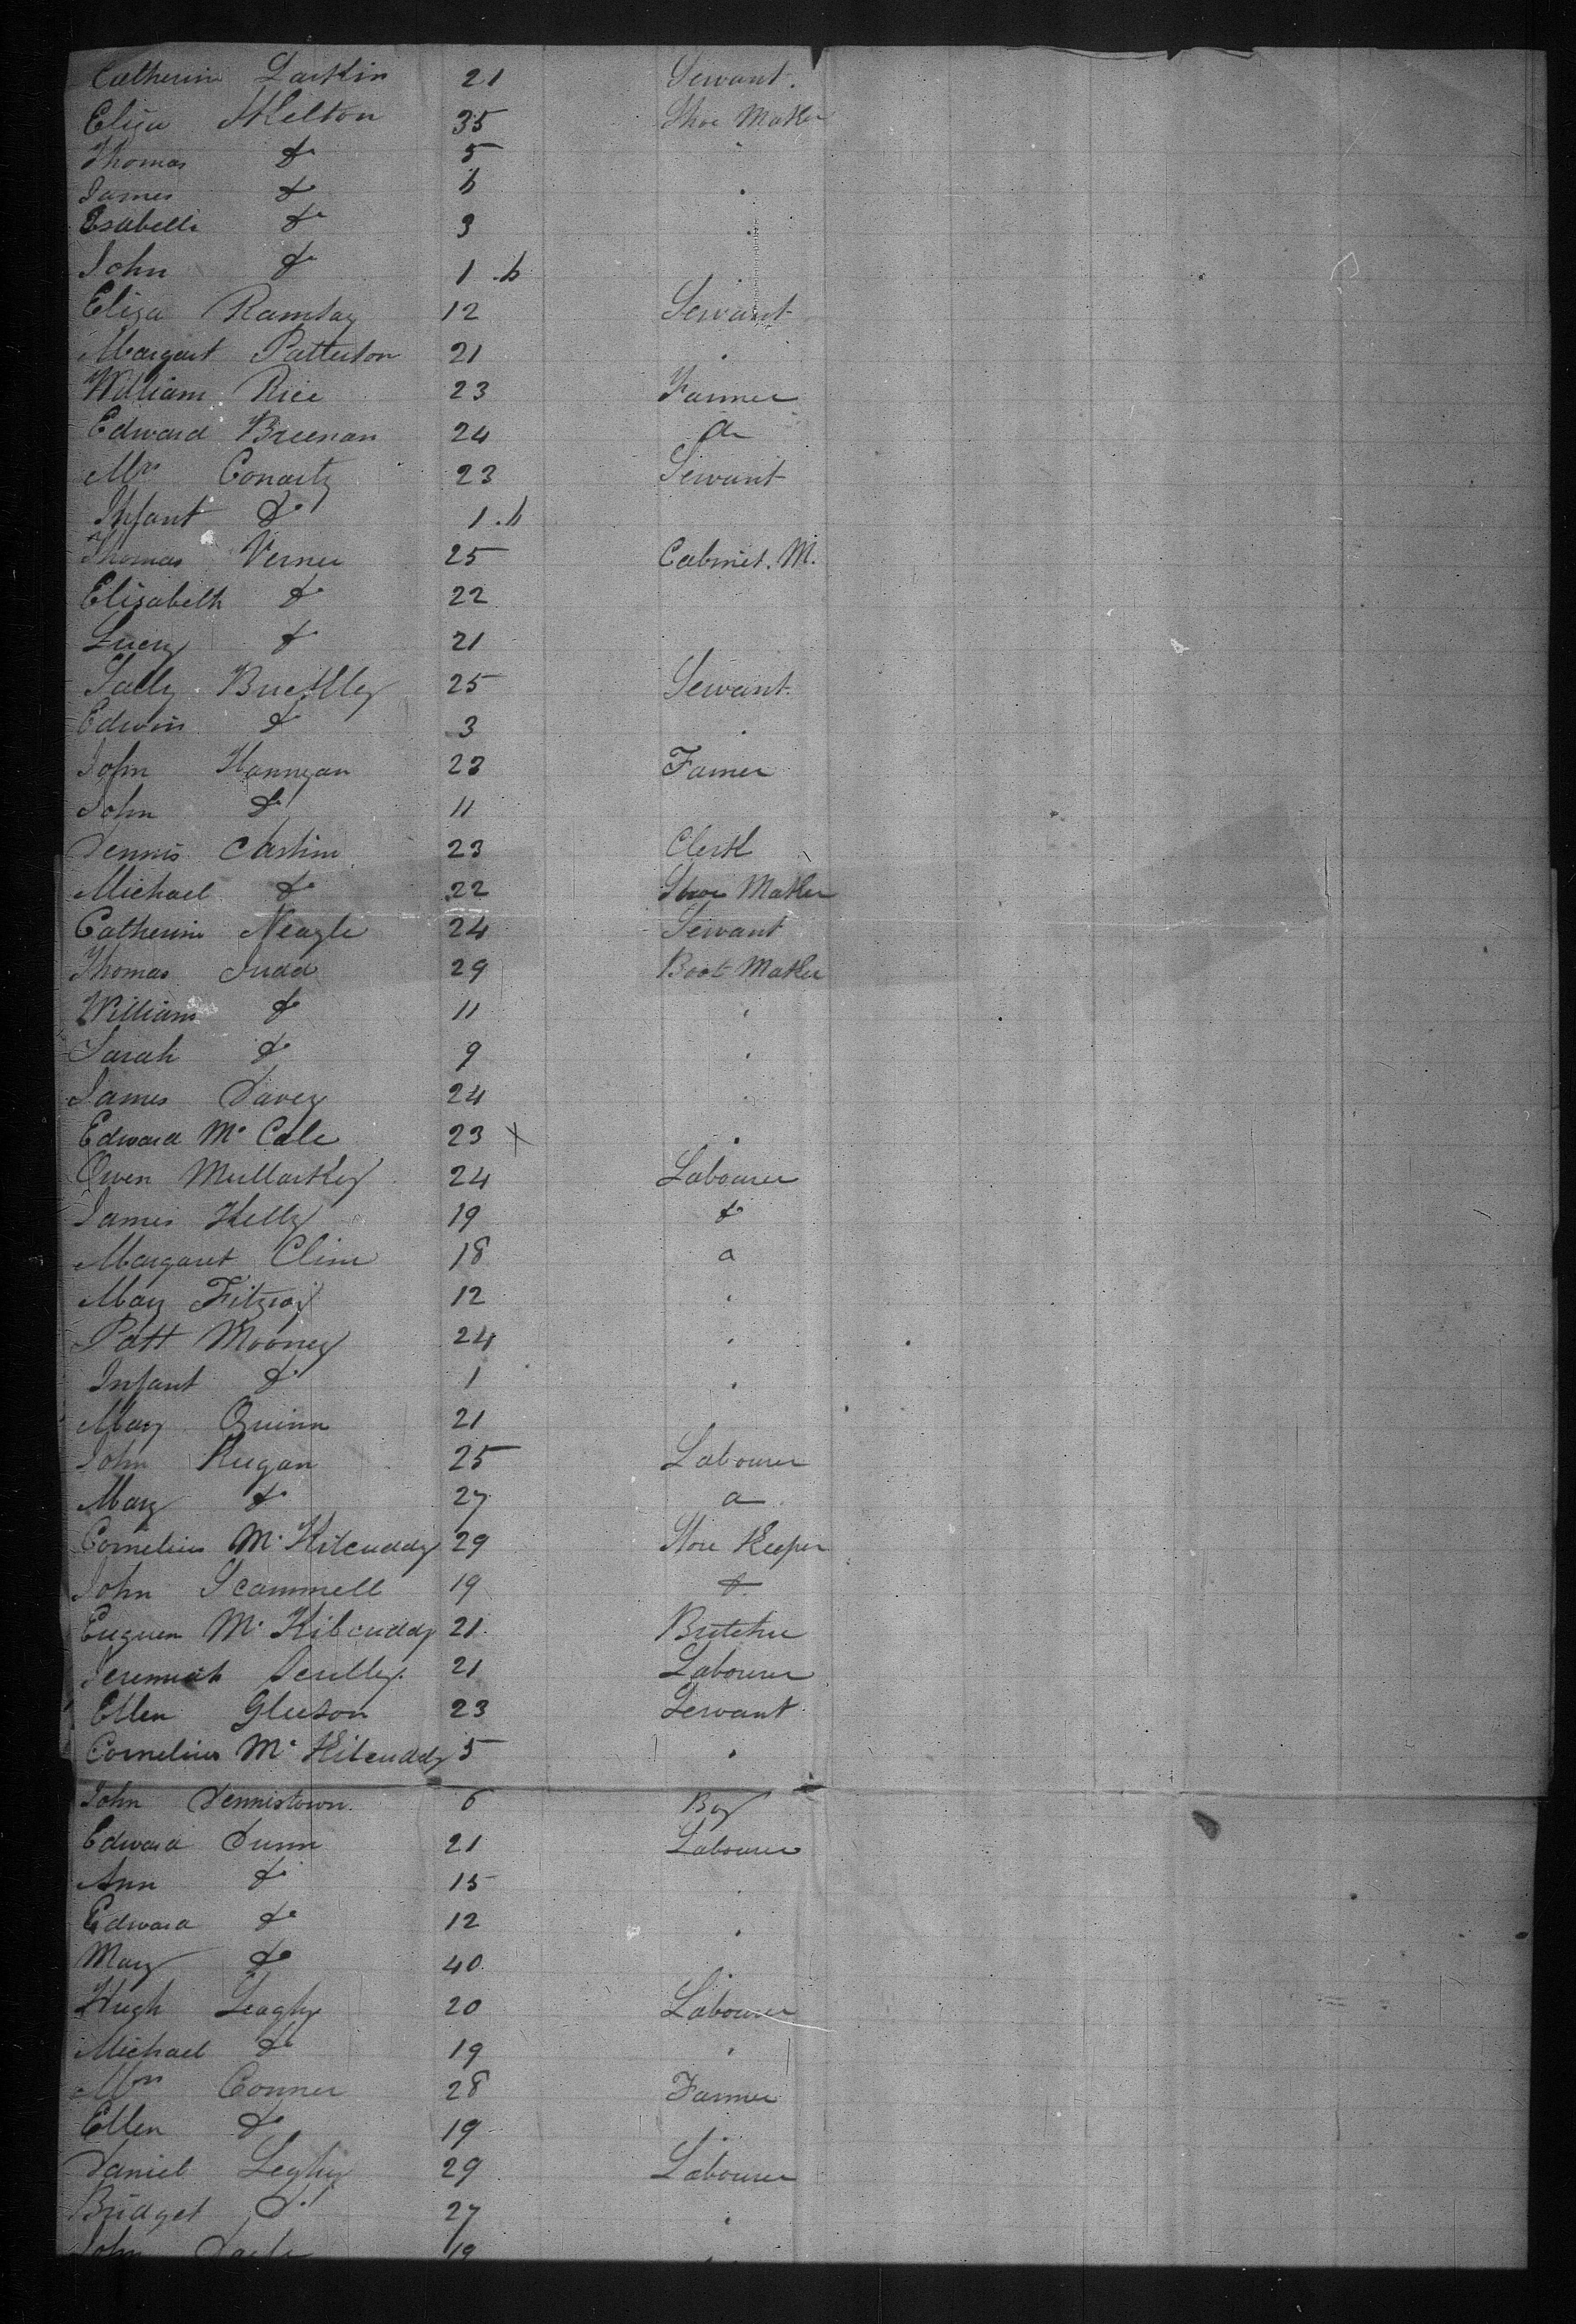 Catherine Larkin 21 Servant.
Eliza Skelton 35 Shoe Maker
Thomas do 5 "
James do 6 "
Isabella do 3 "
John do 1.6 "
Eliza Ramsay 12 Servant
Margaret Patterson 21 "
William Rice 23 Farmer
Edward Breenan 24 do
Mrs Conarty 23 Servant
Infant do 1.6
Thomas Verner 25 Cabinet. M.
Elizabeth do 22
Lucy do 21
Sally Buckley 25 Servant.
Edwin do 3 "
John Hannegan 23 Farmer
John do 11
Dennis 23 Clerk
Michael do 22 Shoe Maker
Catherine Neagle 24 Servant
Thomas Judd 29 Boot Maker
William do 11 "
Sarah do 9 "
James Davey 24 "
Edward Mc Cale 23 x "
Owen Mullarkey 24 Labourer
James Kelly 19 do
Margaret Cline 18 do
Mary Fitzroy 12 "
Patt Mooney 24 "
Infant do 1 "
Mary Quinn 21
John Reegan 25 Labourer
Mary do 27 do
Cornelius Mc Kilcuddy 29 Store Keeper
John Scammell 19 do
Euguen Mc Kilcuddy 21 Butcher
Jeremiah Scully 21 Labourer
Ellen Gleeson 23 Servant
Cornelius Mc Kilcuddy 5 "
John Dennistown. 6 Boy
Edward Dunn 21 Labourer
Ann do 15 "
Edward do 12 "
Mary do 40. "
Hugh Leaghy 20 Labourer
Michael do 19 "
Mrs Conner 28 Farmer
Ellen do 19 "
Daniel Leghy 29 Labourer
Bridget do 27 "
John 19 "